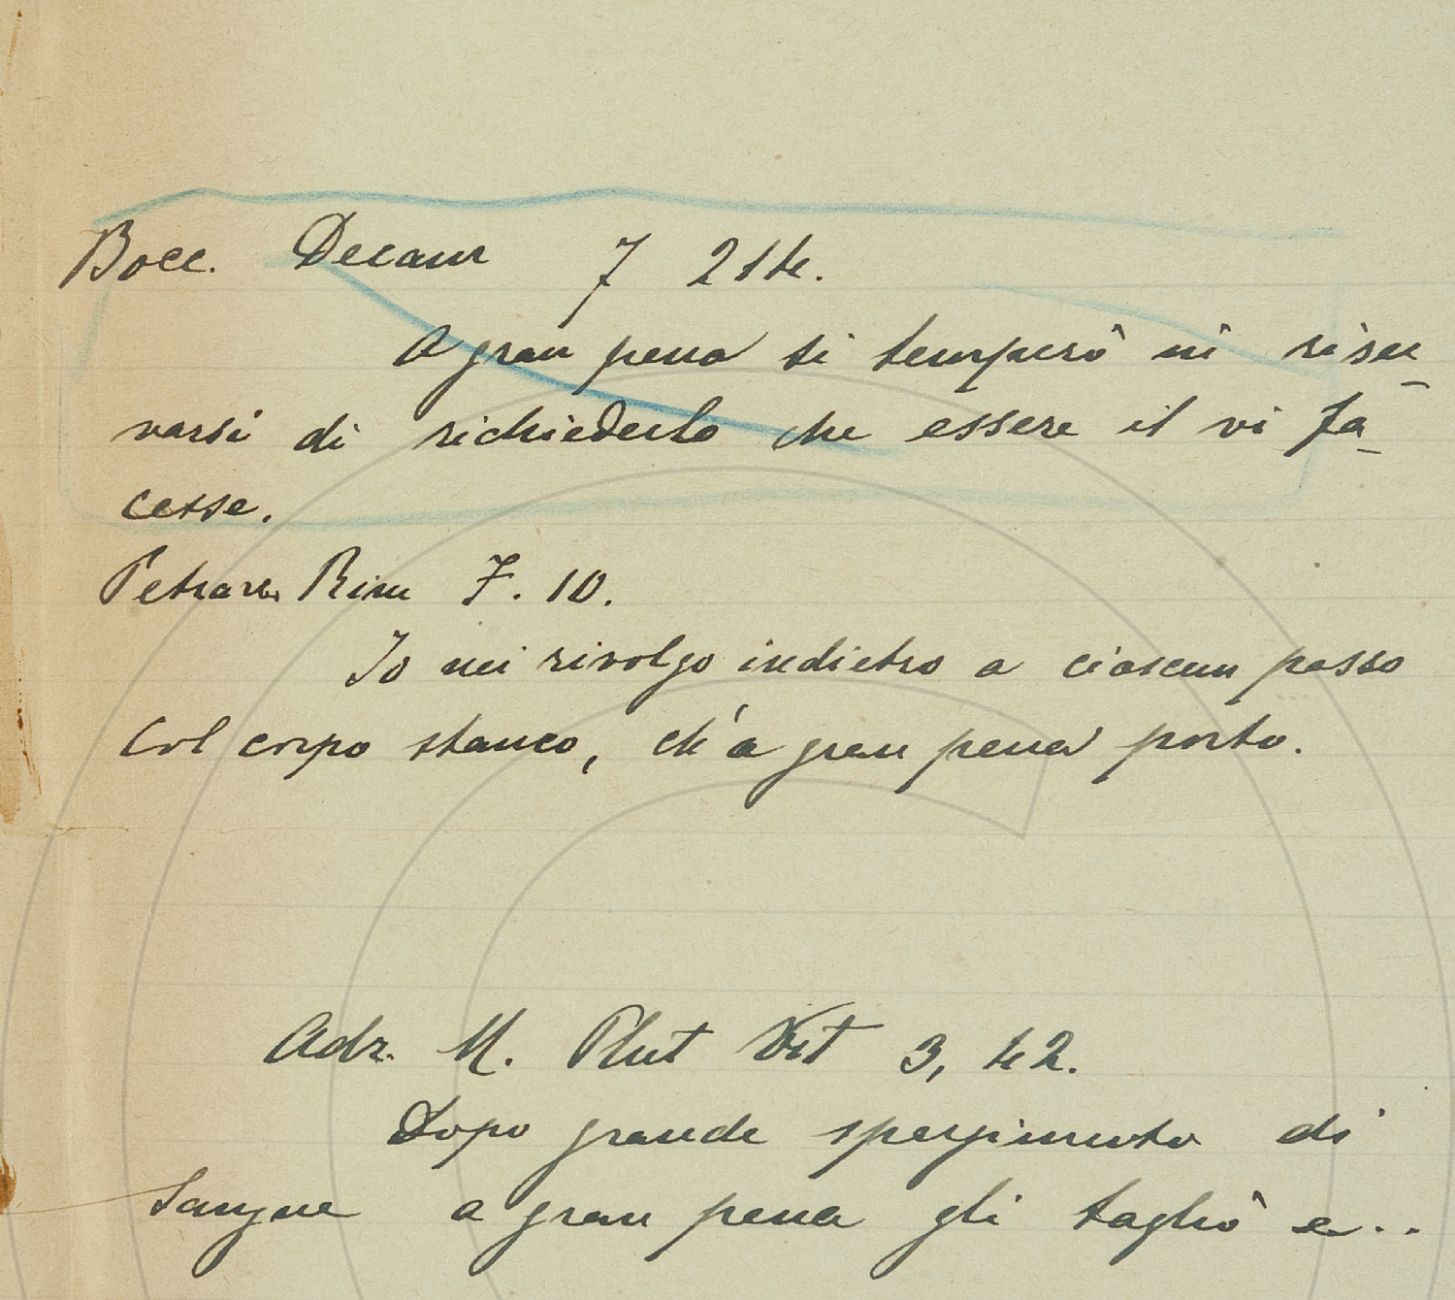 Bocc. Decam 7 214.
A gran pena si temperò in riser-
varsi di richiederlo che essere il vi fa-
cesse.
Petrarc. Rim 7. 10.
Io mi rivolgo indietro a ciascun passo
Col corpo stanco, ch'a gran pena porto.
Adr. M. Plut Vit 3, 42.
Dopo grande spargimento di
Sangue a gran pena gli tagliò e..